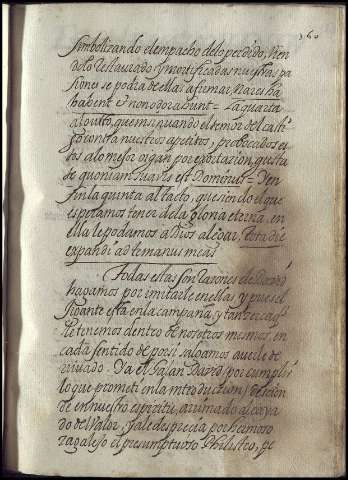 360
simbolizando el empacho delo perdido, vien
dolo restaurado y mortificadas nuestras pa
siones se podra de ellas afirmar Nares ha
habent & non odorabunt = La quarta
al gusto, que insinuando el temor del casti
go contra nuestros apetitos, probocados es
tos alo mejor organ por exortazion, gusta
te quoniam suavis est Dominus = Y en
fin la quinta al tacto, que siendo el que
esperamos tener dela gloria eterna, en
ella le podamos a Dios alegar, tota die
expandi ad te manus meas
Todas estas son razones de David
hagamos por imitarle en ellas, y pues el
Gigante esta en la campaña, y tan cerca q
le tenemos dentro de nosotros mesmos, en
cada sentido de por si, salgamos a
Ya el Galan David por cumplir
lo que prometi en la introduction, descien
de en nuestro espiritu, arrimado al caya
do del valor, sale desprecia por hermoso
zagalejo el presumptuoso Philisteo, pe